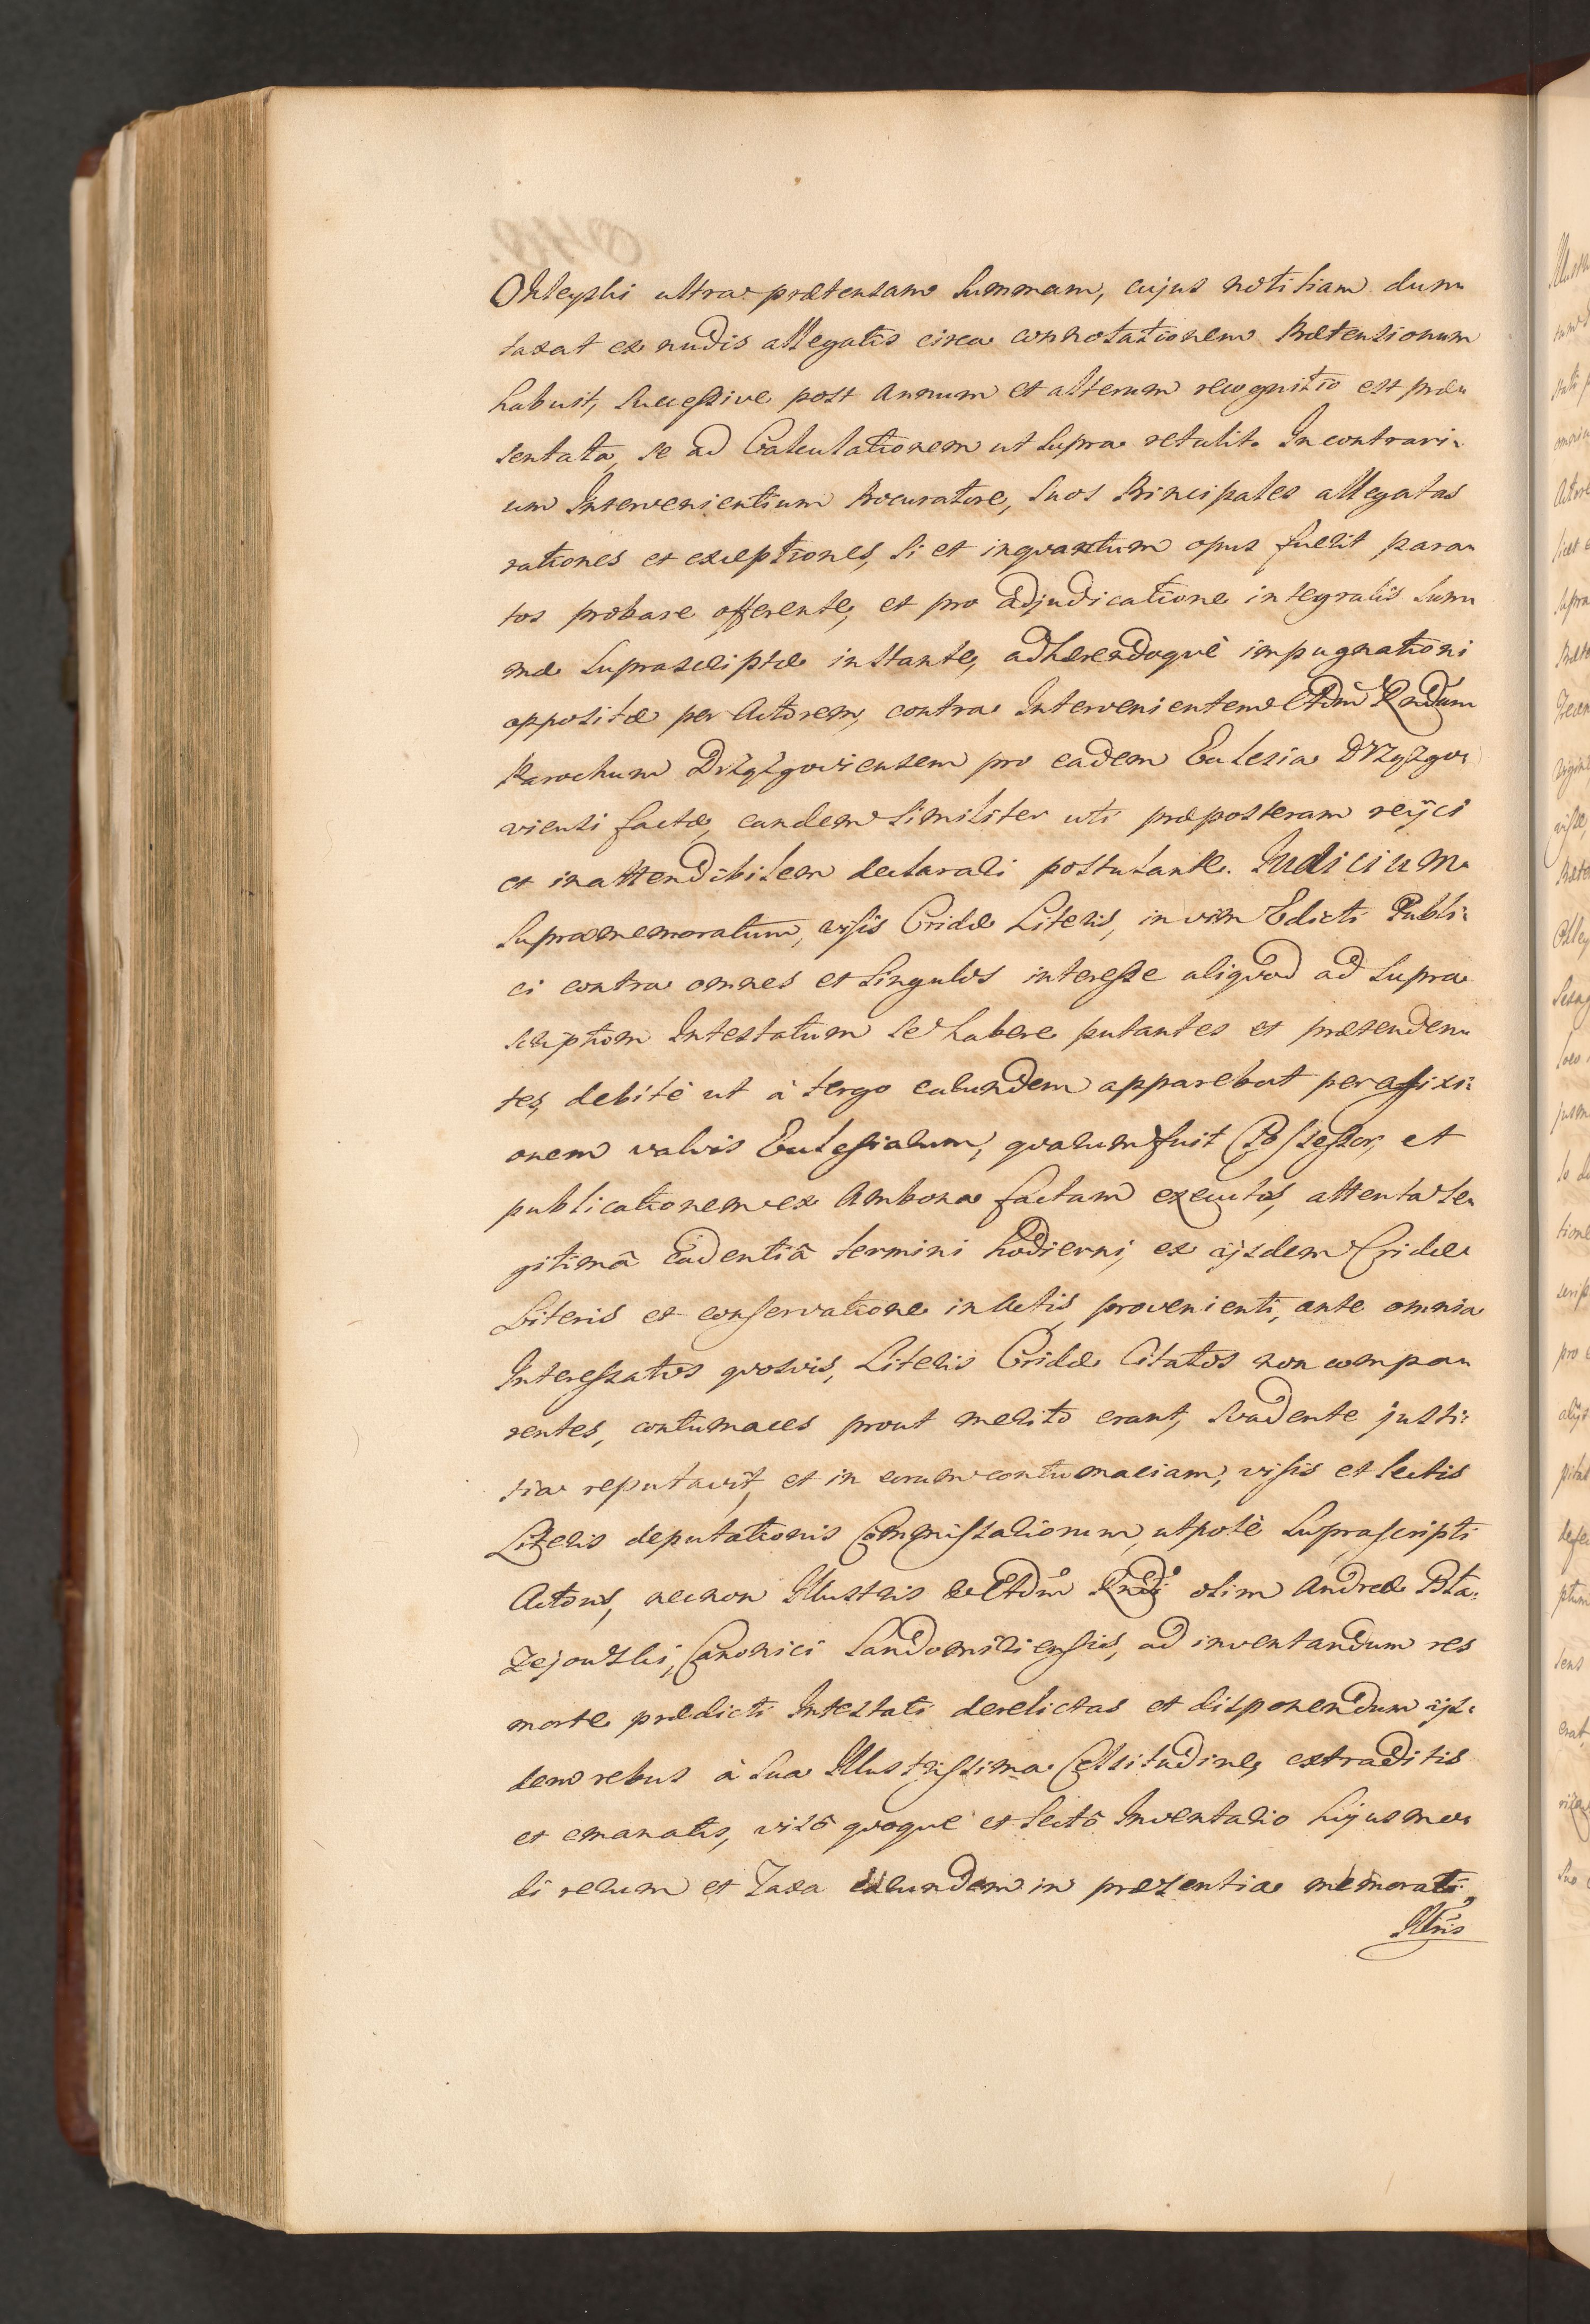 Okleyski ultra prætensam Summam, cujus notitiam dum„
taxat ex nudis allegatis circa connotationem Prætensionum
habuit, Successive post Annum et alterum recognitio est præ„
sentata, se ad Calculationem ut Supra retulit. In contrari„
um Intervenientium Procuratore, Suos Principales allegatas
rationes et exceptiones, Si et inqvantum opus fuerit para„
tos probare offerente, et pro adjudicatione integralis Sum„
mæ Suprascriptæ instante, adhærendoqvè impugnationi
oppositæ per Actorem, contra Intervenientem Adm Rndum
Parochum Drzązgoviensem pro eadem Ecclesia Drzązgo„
viensi factæ, eandem Similiter uti præposteram reijci
et inattendibilem declarari postulante. Iudicium
Supræmemoratum, visis Cridæ Literis, in vim Edicti Publi:
ci contra omnes et Singulos interesse aliqvod ad Supra
scriptum Intestatum Se habere putantes et prætenden„
tes, debitè ut à tergo earundem apparebat per affixi:
onem valvis Ecclesiarum, qvarum fuit Possessor, et
publicationem ex Ambona factam executis, attenta le„
gitimâ Cadentiâ termini hodierni, ex ijsdem Cridæ
Literis et conservatione in Actis, provenienti, ante omnia
Interessatos qvosvis, Literis Cridæ Citatos non compa„
rentes, contumaces prout merito erant, Svadente justi:
tia reputavit, et in eorum contumaciam, visis et lectis
Literis deputationis Commissariorum, utpotè Suprascripti
Actoris, necnon Illustris Adm Rndi olim Andreæ Bła„
żejowski, Canonici Sandomiriensis, ad inventandum res
morte prædicti Intestati derelictas et disponendum ijs„
dem rebus à Sua Illustrissima Celsitudine, extraditis
et emanatis, visô qvoqve et lectô Inventario hujusmo„
di rerum et Taxa earundem in præsentia memorati
Illris